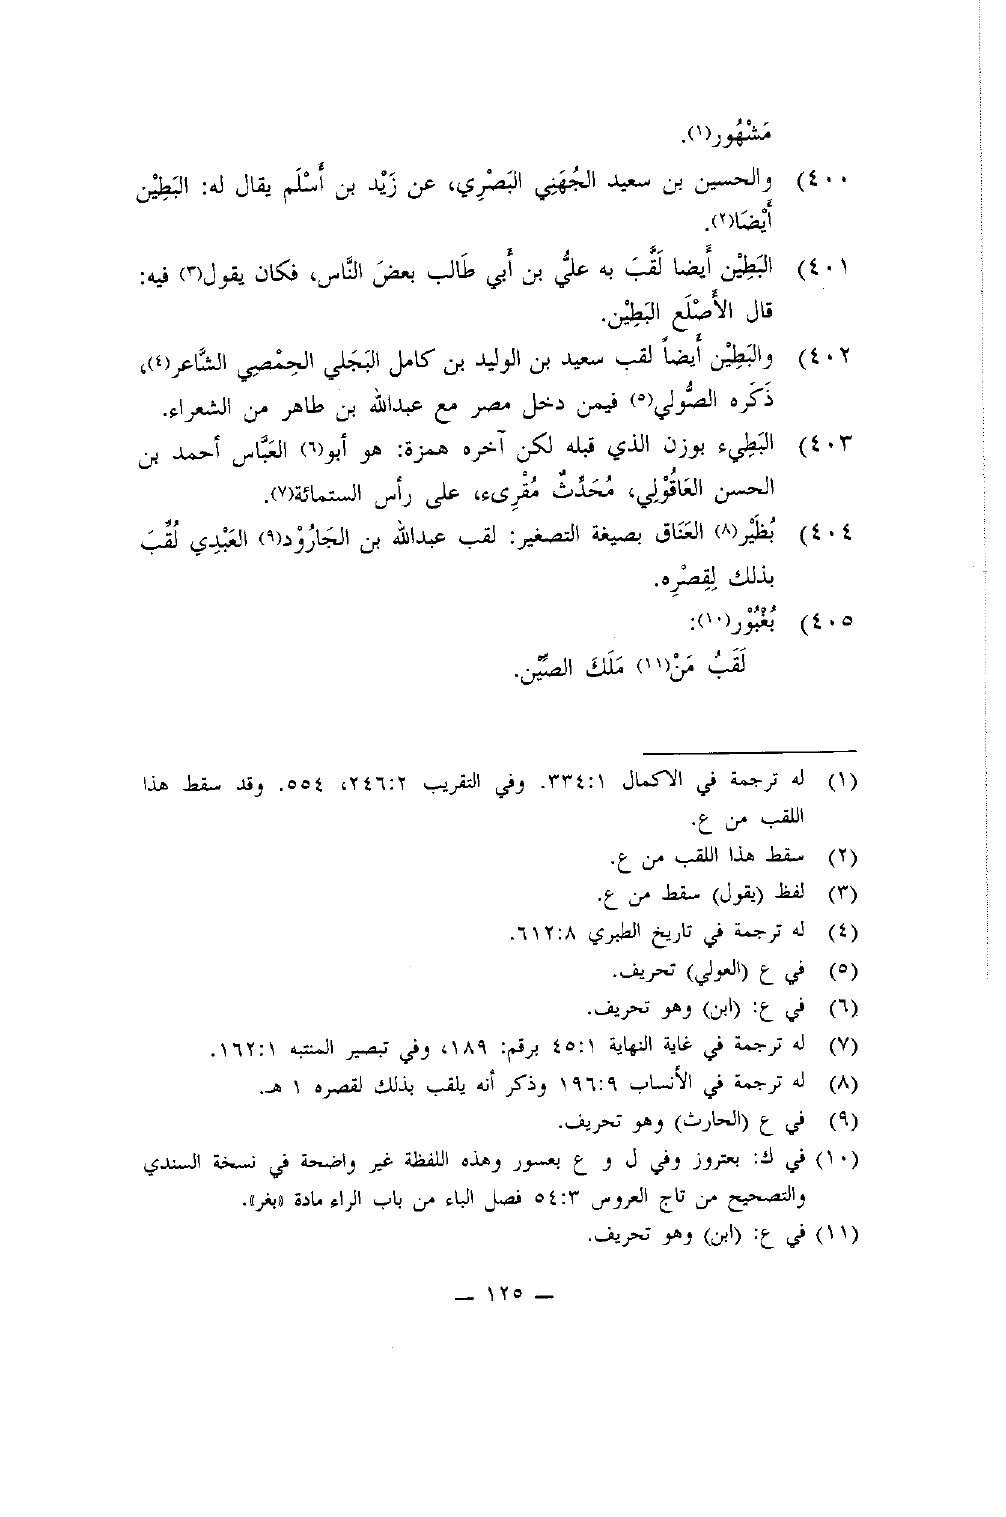 مَشْهُور(١).
٤٠٠) والحسين بن سعيد الجُهَنِي البَصْرِي، عن زَيْد بن أَسْلَم يقال له: البَطِيْن
أَيْضَا(٢).
٤٠١) البَطِيْن أَيضا لَقَّبَ به عليُّ بن أَبي طَالب بعضَ النَّاس، فكان يقول(٣) فيه:
قال الأَصْلَع البَطِيْن.
٤٠٢) والبَطِيْن أَيضاً لقب سعيد بن الوليد بن كامل البَجَلي الحِمْصِي الشَّاعر(٤)،
ذَكَره الصُّولي(٥) فيمن دخل مصر مع عبدالله بن طاهر من الشعراء.
٤٠٣) البَطِيء بوزن الذي قبله لكن آخره همزة: هو أبو(٦) العَبَّاس أحمد بن
الحسن العَاقُوْلِي، مُحَدِّثٌ مُقْرِىء، على رأس الستمائة(٧).
٤٠٤) بُظَيْر(٨) العَنَاق بصيغة التصغير: لقب عبدالله بن الجَارُوْد(٩) العَبْدِي لُقِّبَ
بذلك لِقِصْرِه.
٤٠٥) بُغْبُوْر(١٠):
لَقَبُ مَنْ(١١) مَلَكَ الصِّيْن.
(١) له ترجمة في الاكمال ٣٣٤:١. وفي التقريب ٢٤٦:٢، ٥٥٤. وقد سقط هذا
اللقب من ع.
(٢) سقط هذا اللقب من ع.
(٣) لفظ (يقول) سقط من ع.
(٤) له ترجمة في تاريخ الطبري ٦١٢:٨.
(٥) في ع (العولي) تحريف.
(٦) في ع: (ابن) وهو تحريف.
(٧) له ترجمة في غاية النهاية ٤٥:١ برقم: ١٨٩، وفي تبصير المنتبه ١٦٢:١.
(٨) له ترجمة في الأنساب ١٩٦:٩ وذكر أنه يلقب بذلك لقصره ١ هـ.
(٩) في ع (الحارث) وهو تحريف.
(١٠) في ك: بعتروز وفي ل و ع بعسور وهذه اللفظة غير واضحة في نسخة السندي
والتصحيح من تاج العروس ٥٤:٣ فصل الباء من باب الراء مادة «بغر».
(١١) في ع: (ابن) وهو تحريف.
— ١٢٥ —